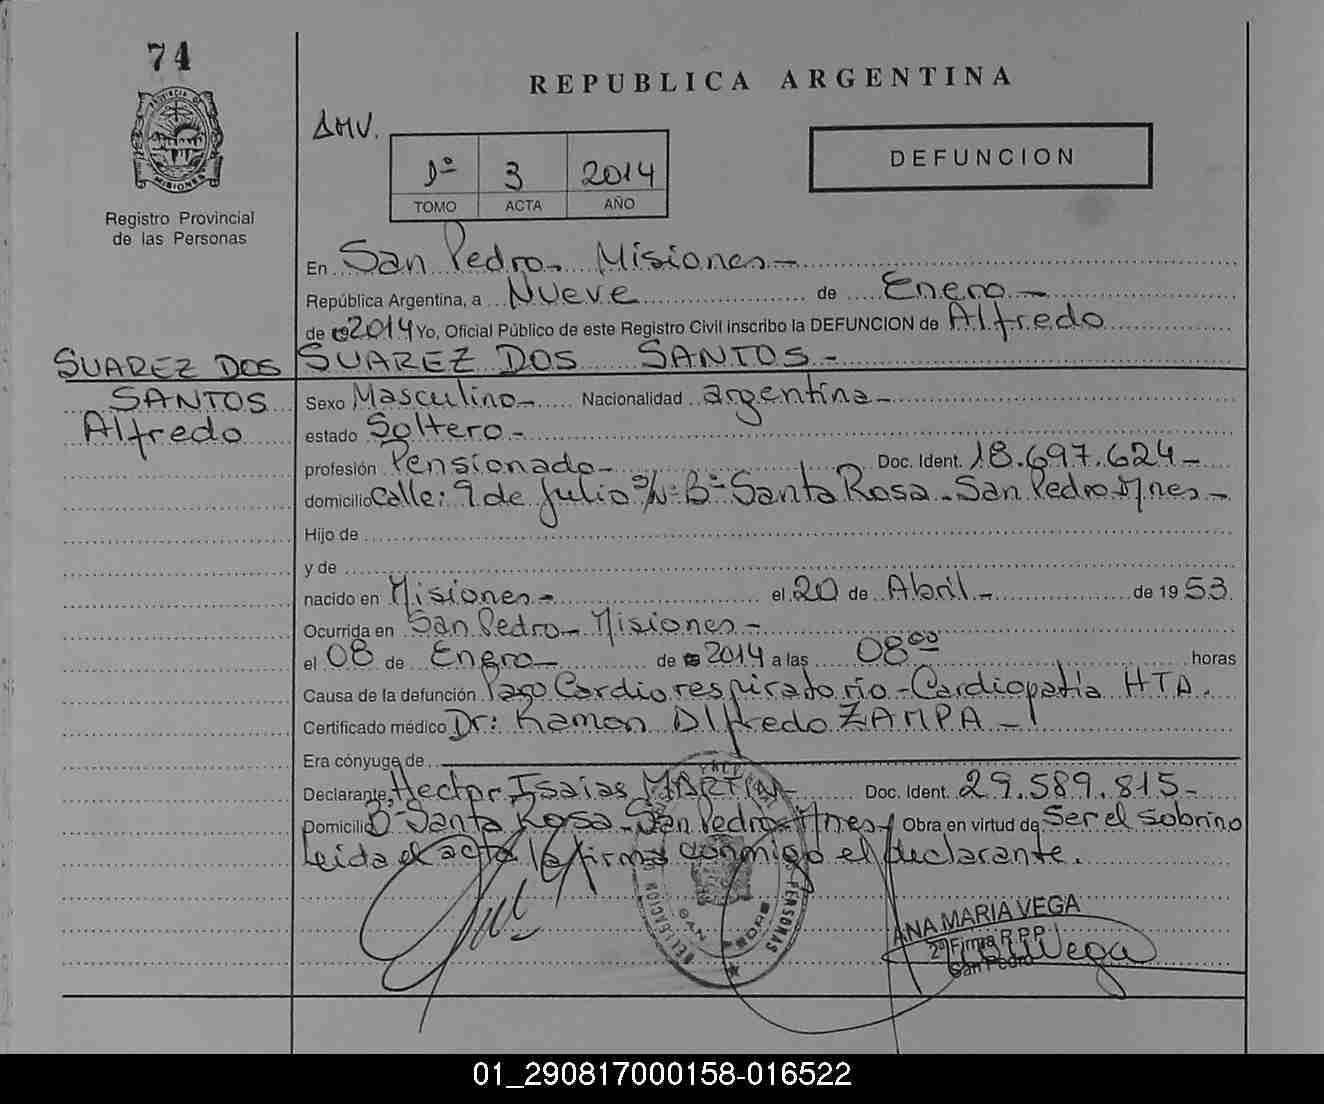 74
PROVINCIA DE
MISIONES
Registro Provincial
de las Personas
REPUBLICA ARGENTINA
AMV.
1º 3 2014
TOMO ACTA AÑO
DEFUNCION
En San Pedro - Misiones -
República Argentina, a Nueve de Enero -
de 2014 Yo, Oficial Público de este Registro Civil inscribo la DEFUNCION de Alfredo
SUAREZ DOS SANTOS -
SUAREZ DOS
SANTOS
Alfredo
Sexo Masculino - Nacionalidad argentina -
estado Soltero -
profesión Pensionado - Doc. Ident. 18.697.624 -
domicilio Calle: 9 de Julio s/Nº Bº Santa Rosa - San Pedro Mnes -
Hijo de
y de
nacido en Misiones - el 20 de Abril - de 1953
Ocurrida en San Pedro - Misiones -
el 08 de Enero - de 2014 a las 08 00 horas
Causa de la defunción Paro Cardiorespiratorio - Cardiopatía HTA.
Certificado médico Dr: Ramon Alfredo ZAMPA -
Era cónyuge de
Declarante, Hector Isaias MARTIN - Doc. Ident. 29.589.815 -
Domicilio Bº Santa Rosa - San Pedro - Mnes - Obra en virtud de Ser el sobrino
Leida el acta la firma conmigo el declarante.
DELEGACION
SAN PEDRO
PERSONAS
ANA MARIA VEGA
2º Firma R.P.P.
San Pedro
01_290817000158-016522